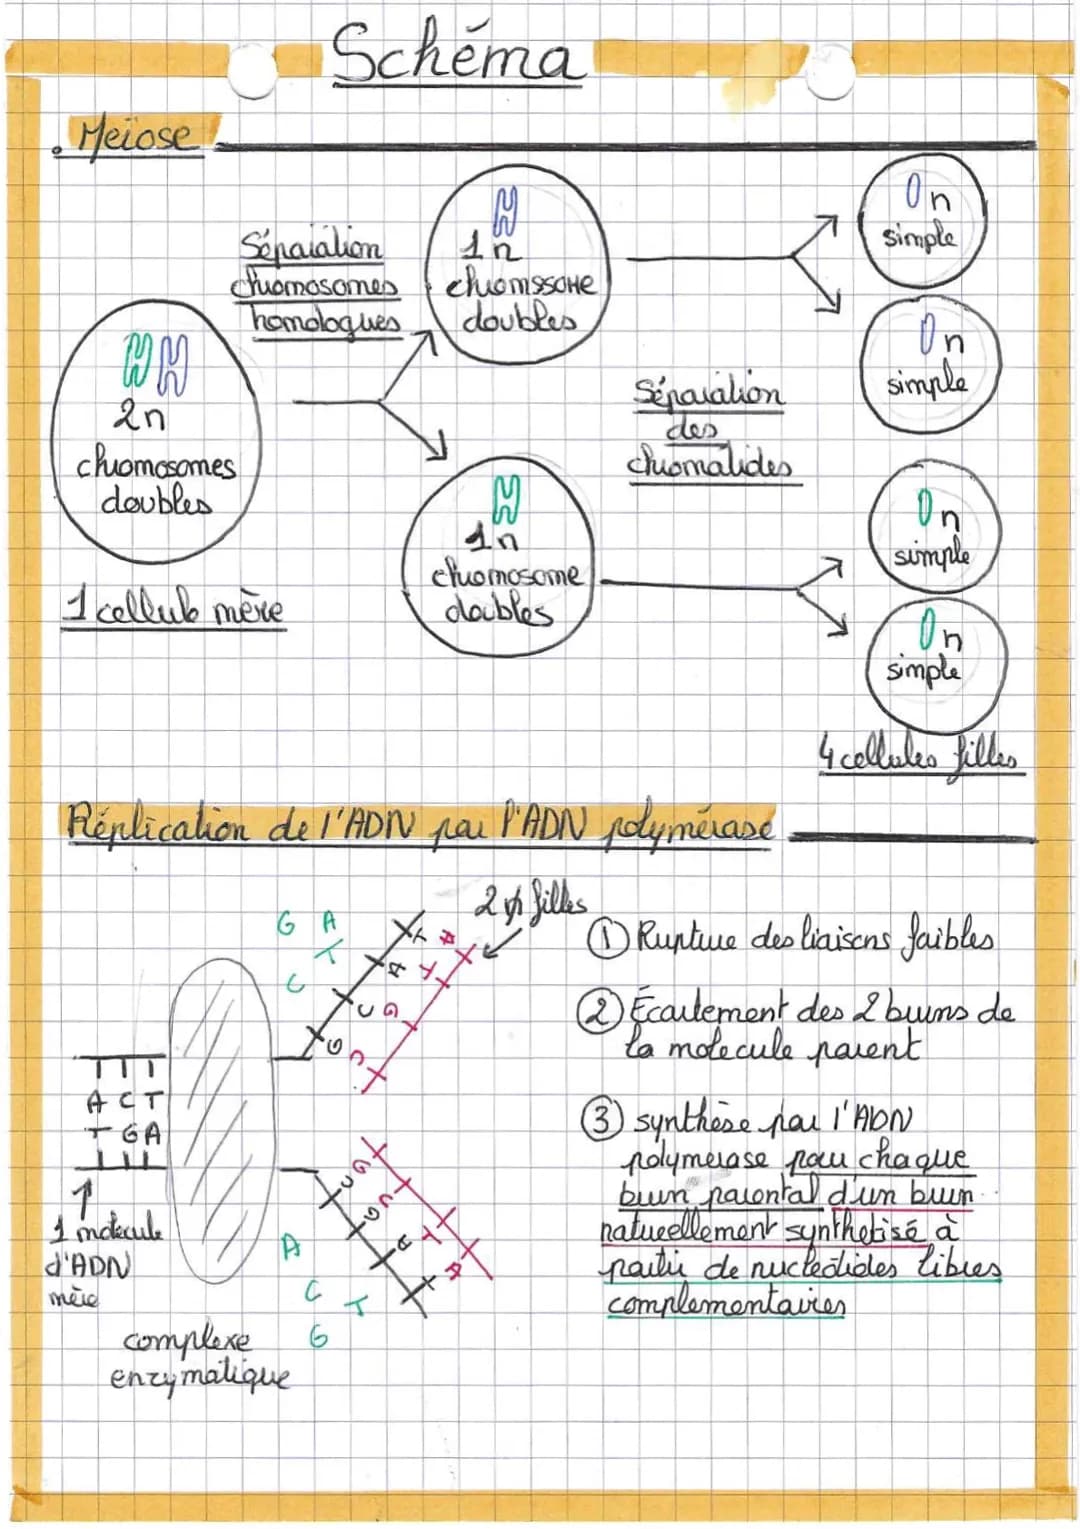 Schéma
. Meïose
Séparation
chromosomes
homologues
2n
chromosomes
doubles
1 cellule mère
1n
chromssome
doubles
1n
chromosome
doubles
Séparation
des
chromatides
n
simple
n
simple
n
simple
n
simple
4 cellules filles
Réplication de l'ADN par l'ADN polymérase
G A
T
C
T A
A T
C G
G C
2 filles
A C T
T G A
1 molécule
d'ADN
mère
complexe
enzymatique
A
C
T
G
① Rupture des liaisons faibles
② Écartement des 2 brins de
la molecule parent
③ synthèse par l'ADN
polymerase pour chaque
brin parental d'un brin
synthetisé à
partir de nucléotides libres
complementaires